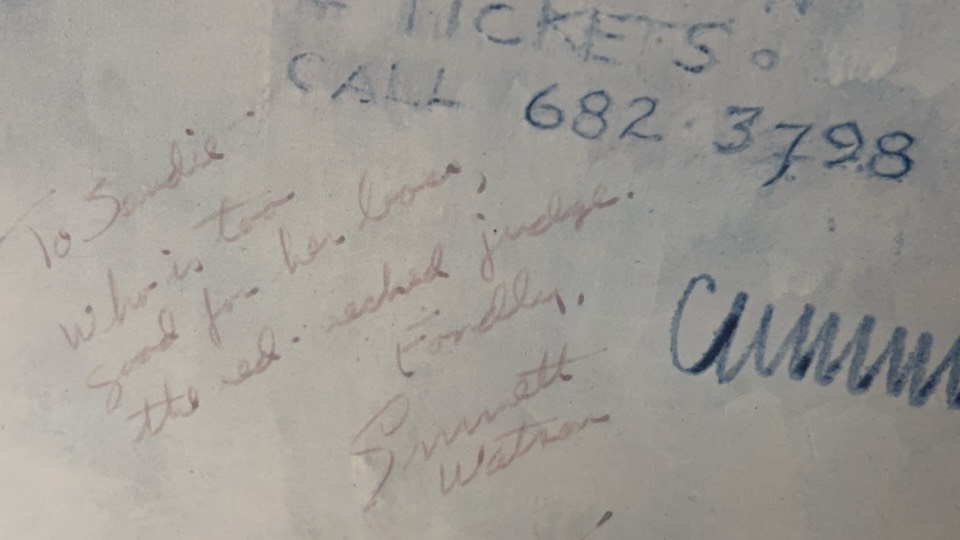 TICKETS.
CALL 682-3798
To Sandie -
Who is too
good for her boss,
the red-necked judge.
Fondly,
Emmett
Watson